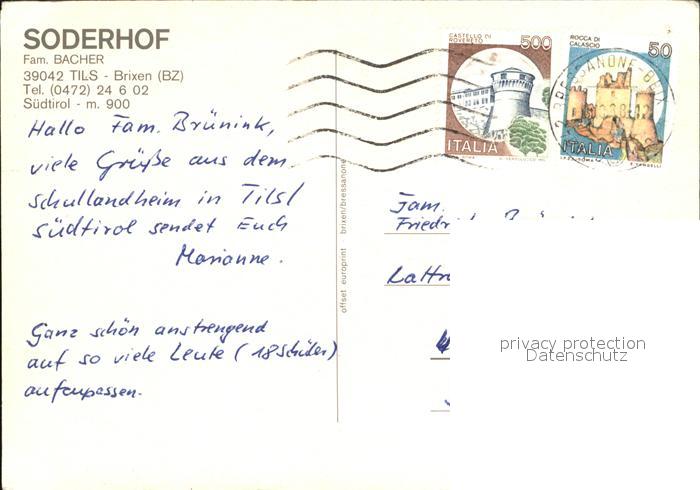 SODERHOF
Fam. BACHER
39042 TILS - Brixen (BZ)
Tel. (0472) 24 6 02
Südtirol - m. 900
Hallo Fam. Brünink,
viele Grüße aus dem
Schullandheim in Tils/
Südtirol sendet Euch
Marianne.
Ganz schön anstrengend
auf so viele Leute (18 Schüler)
aufzupassen.
offset europrint brixen/bressanone
CASTELLO DI
ROVERETO
500
ITALIA
ROCCA DI
CALASCIO
50
ITALIA
Fam.
Friedr
privacy protection
Datenschutz